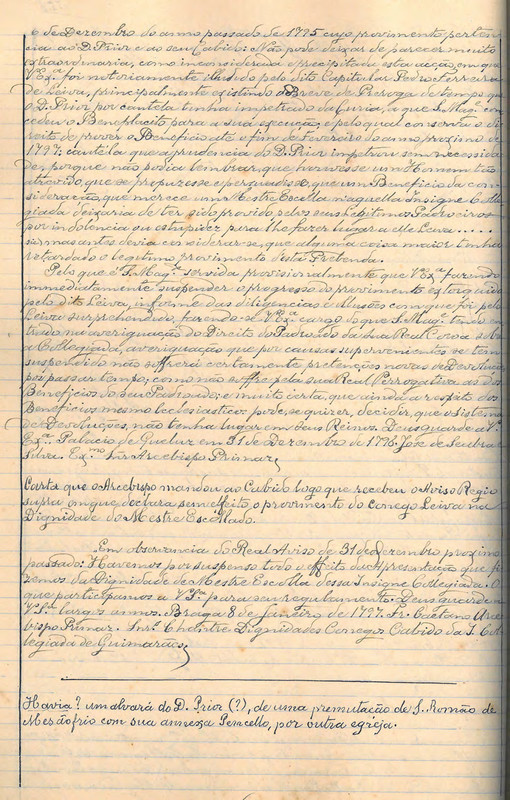 o de Dezembro do anno passado de 1795 cujo provimento perten-
cia ao D. Prior e ao seu Cabido: Não pode deixar de parecer muito
extraordinaria, como inconsiderada e precipitada esta acção, em que
V. Ex.ª foi notoriamente illudido pelo dito Capitular Pedro Ferreira
de Leiva, principalmente existindo o Breve de Proroga de tempo que
o D. Prior por cautela tinha impetrado da Curia, a que S. Mag.e con-
cedeu o Beneplacito para a sua execução, e pelo qual conserva o di-
reito de prover o Beneficio até o fim de Fevereiro do anno proximo de
1797: cautéla que a prudencia do D. Prior impetrou sem necessida-
de, porque não podia lembrar, que houvesse um Homem tão
atrevido, que se propuzesse e persuadisse, que um Beneficio da con-
sideração, que merece um Mestre Escolla n'aquella Insigne Colle-
giada deixaria de ter sido provido pelos seus legitimos Padroeiros
por indolencia ou estupidez para lhe fazer lugar a elle Leiva.....
sua mas antes devia considerar-se, que alguma coisa maior tenha
retardado o legitimo provimento desta Prebenda.
Pelo que é S. Mag.e servida provisionalmente que V. Ex.ª fazendo
immediatamente suspender o progresso do provimento extorquido
pelo dito Leiva, informe das diligencias e illusões com que foi pelo
Leiva surprehendido, fazendo-se V. Ex.ª cargo de que S. Mag.e tendo en-
trado na averiguação do Direito do Padroado da Sua Real Coroa sobre
a Collegiada, averiguação que por causas supervenientes se tem
suspendido não soffrerá certamente pretenções novas de Devolução
por passar tempo; como não soffre pela sua Real Perrogativa as dos
Beneficios do Seu Padroado; e muito certa, que ainda a respeito dos
Beneficios mesmo ecclesiasticos pode, se quizer, decidir, que o sistema
de Devoluções, não tenha lugar em Seus Reinos. Deus guarde a V.
Ex.ª Palacio de Queluz em 31 de Dezembro de 1796. José de Seabra e
Silva. Ex.mo Snr. Arcebispo Primaz
Carta que o Arcebispo mandou ao Cabido logo que recebeu o Aviso Regio
supra em que declara sem effeito o provimento do Conego Leiva na
Dignidade do Mestre Escollado.
Em observancia do Real Aviso de 31 de Dezembro proximo
passado: Havemos por suspenso todo o effeito da Apresentação que fi-
zemos da Dignidade de Mestre Escolla dessa Insigne Collegiada. O
que participamos a V. S.ª para seu regulamento. Deus guarde a
V. S.ª largos annos. Braga 8 de Janeiro de 1797. Fr. Caetano Arce-
bispo Primaz. Snr.s Chantre Dignidades Conegos Cabido da I. Col-
legiada de Guimarães
Havia? um alvará do D. Prior (?), de uma premutação de S. Romão de
Mesãofrio com sua annexa Pencello, por outra egreja.